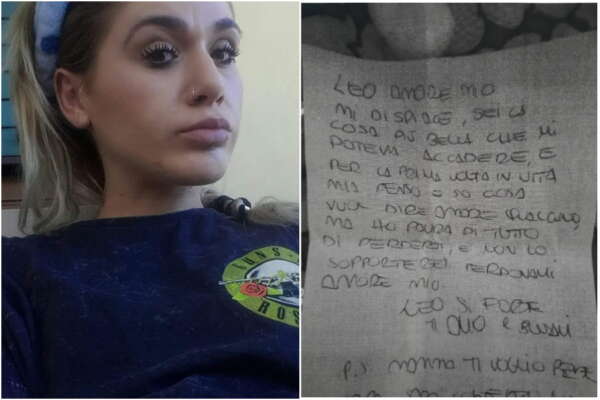 GUNS
ROS
LEO AMORE MIO
MI DISPIACE, SEI LA
COSA PIÙ BELLA CHE MI
POTEVA ACCADERE, E
PER LA PRIMA VOLTA IN VITA
MIA PENSO E SO COSA
VUOL DIRE AMORE QUALCUNO,
MA HO PAURA DI TUTTO
DI PERDERTI, E NON LO
SOPPORTEREI PERDONAMI
AMORE MIO.
LEO SI FORTE
TI AMO E SCUSAMI
P.S NONNA TI VOGLIO BENE